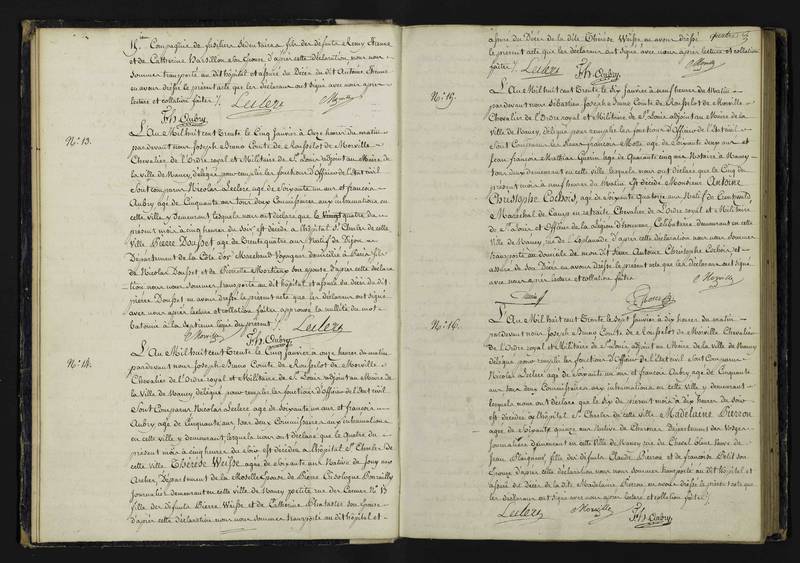 15.me Compagnie de fusiliers sédentaires fils des défunts Remy
et de Catherine d'après cette déclaration, nous nous
sommes transporté au dit hôpital et assuré du Décès du dit Antoine
en avons dressé le présent acte que les déclarans ont signé avec nous après
lecture et collation faites /. Leclerc Morville
Fh Aubry
No. 13.
L'An Mil huit cent Trente le Cinq Janvier à onze heures du matin
pardevant nous Joseph Bruno Comte de Morville
Chevalier de l'Ordre royal et Militaire de St. Louis adjoint au Maire de
la ville de Nancy délégué pour remplir les fonctions d'Officier de l'Etat civil
sont comparus Nicolas Leclerc agé de Soixante un ans et françois
Aubry agé de Cinquante ans tous deux Commissaires aux inhumations en
cette ville y demeurant lesquels nous ont déclaré que le quatre du
présent mois à cinq heures du soir est décédé à l'hôpital St. Charles de cette
Ville Pierre Dousset agé de trente quatre ans Natif de Dijon
Département de la Côte d'or Marchand Voyageur domicilié à Paris fils
de Nicolas Dousset et de Pierrette son épouse d'après cette déclara
tion, nous nous sommes transporté au dit hôpital et assuré du décès du dit
pierre Dousset en avons dressé le présent acte que les déclarans ont signé
avec nous après lecture et collation faites approuvé la nullité du mot
batonné à la septieme ligne du présent /. Leclerc
Morville Fh Aubry
No. 14.
L'An Mil huit cent Trente le Cinq Janvier à onze heures du matin
pardevant nous Joseph Bruno Comte de Morville
Chevalier de l'Ordre royal et Militaire de St. Louis adjoint au Maire de
la Ville de Nancy, délégué pour remplir les fonctions d'Officier de l'Etat civil
sont comparus Nicolas Leclerc agé de Soixante un ans et françois
Aubry, agé de Cinquante ans tous deux Commissaires aux inhumations
en cette ville y demeurant, lesquels nous ont déclaré que le Quatre du
présent mois à cinq heures du soir est décédée à l'hôpital St. Charles de
cette ville Thérèse Weisse agée de Soixante ans Native de Jouy aux
Arches, Département de la Moselle Epouse de Pierre
Journalier demeurant en cette ville de Nancy petite rue des Carmes No. 13
fille des défunts Pierre Weisse et de Catherine son Epouse
d'après cette déclaration nous nous sommes transporté au dit hôpital et
assuré du Décès de la dite Thérèse Weisse en avons dressé
le présent acte que les déclarans ont signé avec nous après lecture et collation
faites /. Leclerc Fh Aubry Morville
No. 15.
L'An Mil huit cent Trente le Six Janvier à neuf heures du Matin
pardevant nous Joseph Bruno Comte de Morville
Chevalier de l'Ordre royal et Militaire de St. Louis adjoint au Maire de la
ville de Nancy, délégué pour remplir les fonctions d'Officier de l'Etat civil
Sont Comparus les Sieurs françois agé de Soixante deux ans et
Jean françois agé de Quarante cinq ans Notaire à Nancy
tous deux demeurant en cette ville lesquels nous ont déclaré que le Cinq du
présent mois à neuf heures du Matin est décédé Monsieur Antoine
Christophe Cochois, agé de Soixante Quatorze ans Natif de
Maréchal de Camp en retraite Chevalier de l'ordre royal et Militaire
de St. Louis et Officier de la Légion d'honneur, Célibataire demeurant en cette
Ville de Nancy, rue de l'Esplanade d'après cette déclaration nous nous sommes
transporté au domicile de mon dit Sieur Antoine Christophe Cochois, et
assuré de son Décès en avons dressé le présent acte que les déclarans ont signé
avec nous après lecture et collation faites. Morville
No. 16.
L'An Mil huit cent Trente le Sept Janvier à dix heures du matin
pardevant nous Joseph Bruno Comte de Morville Chevalier
de l'Ordre royal et Militaire de St. Louis adjoint au Maire de la ville de Nancy
délégué pour remplir les fonctions d'Officier de l'Etat civil sont Comparus
Nicolas Leclerc agé de Soixante un ans et françois Aubry agé de Cinquante
ans tous deux Commissaires aux inhumations en cette Ville y demeurant
lesquels nous ont déclaré que le Six du présent mois à dix heures du soir
est décédée à l'hôpital St. Charles de cette ville Madelaine Pierron
agée de Soixante quinze ans Native de Département des Vosges
Journalière demeurant en cette Ville de Nancy rue du Cheval blanc Veuve de
Jean fille des défunts Claude Pierron et de françoise Petit son
Epouse d'après cette déclaration nous nous sommes transporté au dit hôpital et
assuré du décès de la dite Madelaine Pierron en avons dressé le présent acte que
les déclarans ont signé avec nous après lecture et collation faites /.
Leclerc Morville Fh Aubry